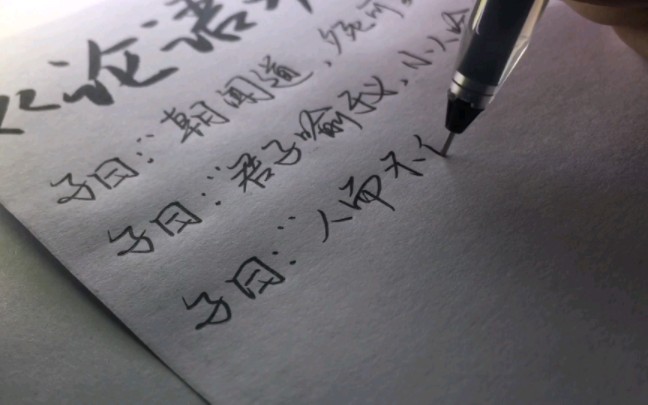 论语
子曰：“朝闻道，夕死可
子曰：“君子喻于义，小人喻
子曰：“人而不